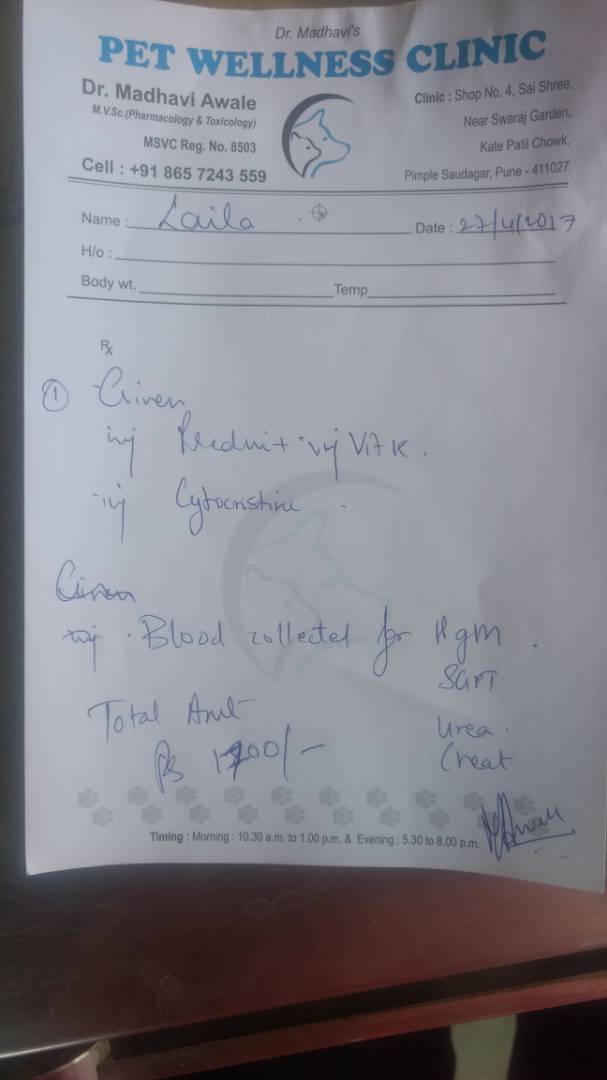 Dr. Madhavi's
PET WELLNESS CLINIC
Dr. Madhavi Awale
M.V.Sc.(Pharmacology & Toxicology)
MSVC Reg. No. 8503
Cell : +91 865 7243 559
Clinic : Shop No. 4, Sai Shree,
Near Swaraj Garden,
Kate Patil Chowk,
Pimple Saudagar, Pune - 411027
Name : Laila
Date : 27/4/2017
H/o :
Body wt. Temp
Rx
① Given
inj Prednit inj Vit K.
inj Cytocristine
Given
inj . Blood collected for Hgm.
SGPT
Urea.
Creat
Total Amt
Rs /-
Timing : Morning : 10.30 a.m. to 1.00 p.m. & Evening : 5.30 to 8.00 p.m.